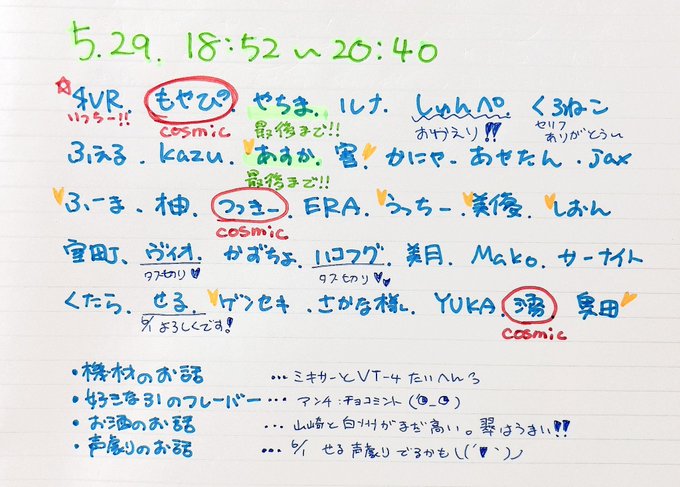 5.29. 18:52〜20:40
4VR. もやぴの やちま. ルナ. しゅんぺ. くろねこ
いっちー!!
cosmic
最後まで!!
おかえり!!
セリフ
ありがとうい
ふえる. kazu. あすか. 害 かにゃ. あせたん. Jax
最後まで!!
ふーま. 柚. つっきー. ERA. うっちー. 美優. しおん
cosmic
室町. ヴィオ. かずちょ. ハコフグ. 美月. Mako. サーナイト
タブ切り
タブ切り
くたら. せる. ゲンセキ. さかな様. YUKA. 湧. 奥田
6/1 よろしくです!
cosmic
・機材のお話 ・・・ミキサーとVT-4 たいへんろ
・好きな31のフレーバー ・・・アンチ:チョコミント(◉_◉)
・お酒のお話 ・・・山崎と白州がまだ高い。翠はうまい!!
・声劇りのお話 ・・・6/1 せる声劇り でるかも\(´▼`)ノ